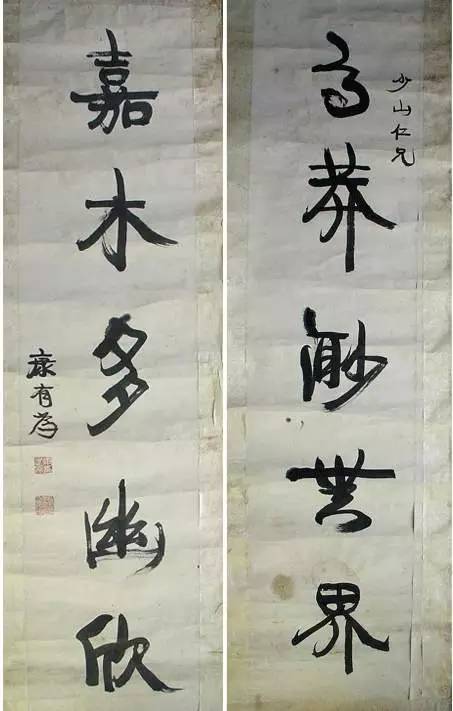 少山仁兄
高莽眇無界
嘉木多幽欣
康有為